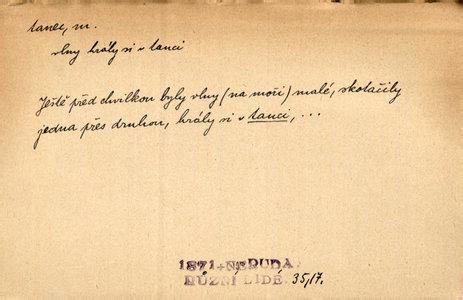 tanec, m.
vlny hrály si v tanci
Ještě před chvilkou byly vlny (na moři) malé, skotačily
jedna přes druhou, hrály si v tanci, ...
1871 NERUDA,
RŮZNÍ LIDÉ 35/17.